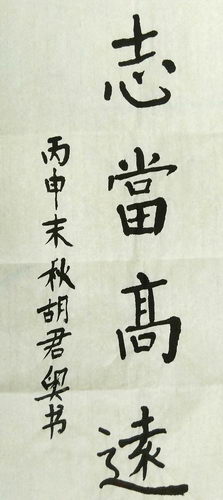 志當高遠
丙申末秋胡君奥书